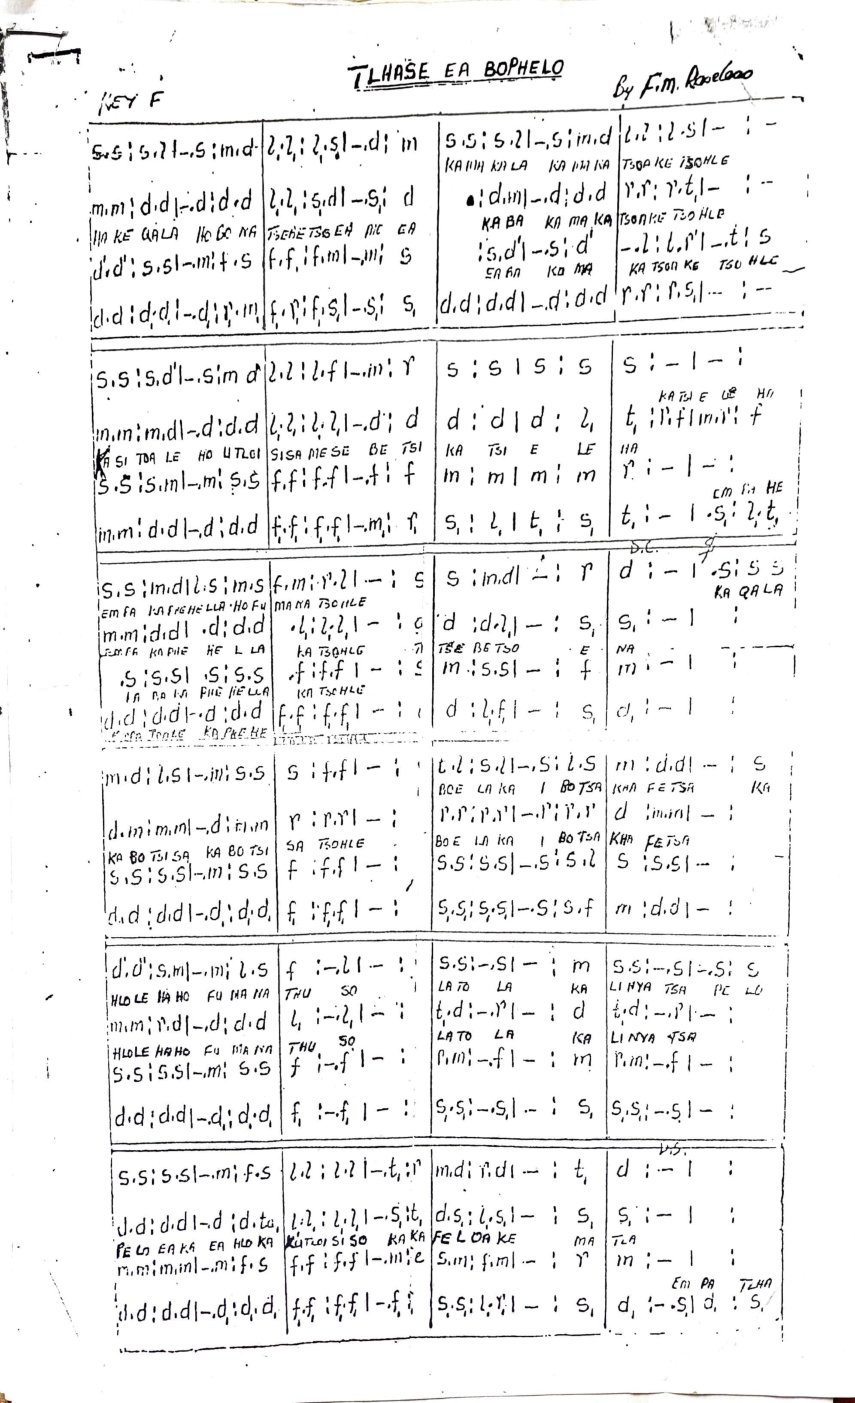 TLHASE EA BOPHELO
KEY F
By F.M.
s.s ¦ s.l l -.s ¦ m.d | l,.l, ¦ l,.s, l -.d ¦ m | s.s ¦ s.l l -.s ¦ m.d | l.l ¦ l.s l - ¦ -
KA MA KA LA KA MA KA TSOA KE TSOHLE
m.m ¦ d.d l -.d ¦ d.d | l,.l, ¦ s,.d l -.s, ¦ d | ¦ d.m l -.d ¦ d.d | r.r ¦ r.t, l - ¦ -
HA KE QALA HO BO NA KA BA KA MA KA TSOA KE TSO HLE
d'.d' ¦ s.s l -.m ¦ f.s | f.f ¦ f.m l -.m ¦ s | ¦ s.d' l -.s ¦ d' | -.l ¦ l.r' l -.t ¦ s
EA BA KO MA KA TSOA KE TSO HLE
d.d ¦ d.d l -.d ¦ r.m | f,.r, ¦ f,.s, l -.s, ¦ s, | d.d ¦ d.d l -.d ¦ d.d | r.r ¦ r.s, l - ¦ -
s.s ¦ s.d' l -.s ¦ m d' | l.l ¦ l.f l -.m ¦ r | s ¦ s l s ¦ s | s ¦ - l - ¦
KA TSI E LE HA
m.m ¦ m.d l -.d ¦ d.d | l,.l, ¦ l,.l, l -.d ¦ d | d ¦ d l d ¦ l, | t, ¦ r.f l m.r ¦ f
KA SI TOA LE HO UTLOI SISA MESE BE TSI KA TSI E LE HA
s.s ¦ s.m l -.m ¦ s.s | f.f ¦ f.f l -.f ¦ f | m ¦ m l m ¦ m | r ¦ - l - ¦
EM PA HE
m.m ¦ d.d l -.d ¦ d.d | f,.f, ¦ f,.f, l -.m, ¦ r, | s, ¦ l, l t, ¦ s, | t, ¦ - l .s, ¦ l,.t,
D.C.
s.s ¦ m.d l l.s ¦ m.s | f.m ¦ r.l l - ¦ s | s ¦ m.d l - ¦ r | d ¦ - l .s ¦ s s
EM PA KA PHE HELLA HO FU MA NA TSOHLE KA QALA
m.m ¦ d.d l .d ¦ d.d | .l, ¦ l,.l, l - ¦ | d ¦ d.l, l - ¦ s, | s, ¦ - l ¦
KA PHE HE L LA KA TSOHLE TSE BE TSO E NA
.s ¦ s.s l .s ¦ s.s | .f ¦ f.f l - ¦ s | m ¦ s.s l - ¦ f | m ¦ - l ¦
PHE HELLA KA TSOHLE
d.d ¦ d.d l -.d ¦ d.d | f,.f, ¦ f,.f, l - ¦ | d ¦ l,.f, l - ¦ s, | d, ¦ - l ¦
KA PHE HE
m.d ¦ l.s l -.m ¦ s.s | s ¦ f.f l - ¦ | t.l ¦ s.l l -.s ¦ l.s | m ¦ d.d l - ¦ s
BOE LA KA I BO TSA KHA FE TSA KA
d.m ¦ m.m l -.d ¦ m.m | r ¦ r.r l - ¦ | r.r ¦ r.r l -.r ¦ r.r | d ¦ m.m l - ¦
KA BO TSI SA KA BO TSI SA TSOHLE BO E LA KA I BO TSA KHA FETSA
s.s ¦ s.s l -.m ¦ s.s | f ¦ f.f l - ¦ | s.s ¦ s.s l -.s ¦ s.l | s ¦ s.s l - ¦
d.d ¦ d.d l -.d, ¦ d,.d, | f, ¦ f,.f, l - ¦ | s,.s, ¦ s,.s, l -.s ¦ s.f | m ¦ d.d l - ¦
d'.d' ¦ s.m l -.m ¦ l.s | f ¦ -.l l - ¦ | s.s ¦ -.s l - ¦ m | s.s ¦ -.s l -.s ¦ s
HLO LE HA HO FU MA NA THU SO LA TO LA KA LI NYA TSA PE LO
m.m ¦ r.d l -.d ¦ d.d | l, ¦ -.l, l - ¦ | t,.d ¦ -.r l - ¦ d | t,.d ¦ -.r l - ¦
HLOLE HA HO FU MA NA THU SO LA TO LA KA LI NYA TSA
s.s ¦ s.s l -.m ¦ s.s | f ¦ -.f l - ¦ | r.m ¦ -.f l - ¦ m | r.m ¦ -.f l - ¦
d.d ¦ d.d l -.d, ¦ d,.d, | f, ¦ -.f, l - ¦ | s,.s, ¦ -.s, l - ¦ s, | s,.s, ¦ -.s, l - ¦
D.S.
s.s ¦ s.s l -.m ¦ f.s | l.l ¦ l.l l -.t, ¦ r | m.d ¦ r.d l - ¦ t, | d ¦ - l ¦
d.d ¦ d.d l -.d ¦ d.ta, | l,.l, ¦ l,.l, l -.s, ¦ t, | d.s, ¦ l,.s, l - ¦ s, | s, ¦ - l ¦
PE LO EA KA EA HLO KA KUTLOI SI SO KA KA FE LOA KE MA TLA
m.m ¦ m.m l -.m ¦ f.s | f.f ¦ f.f l -.m ¦ e | s.m ¦ f.m l - ¦ r | m ¦ - l ¦
EM PA TLHA
d.d ¦ d.d l -.d, ¦ d,.d, | f,.f, ¦ f,.f, l -.f, ¦ | s,.s, ¦ l,.r, l - ¦ s, | d, ¦ -.s, l d, ¦ s,